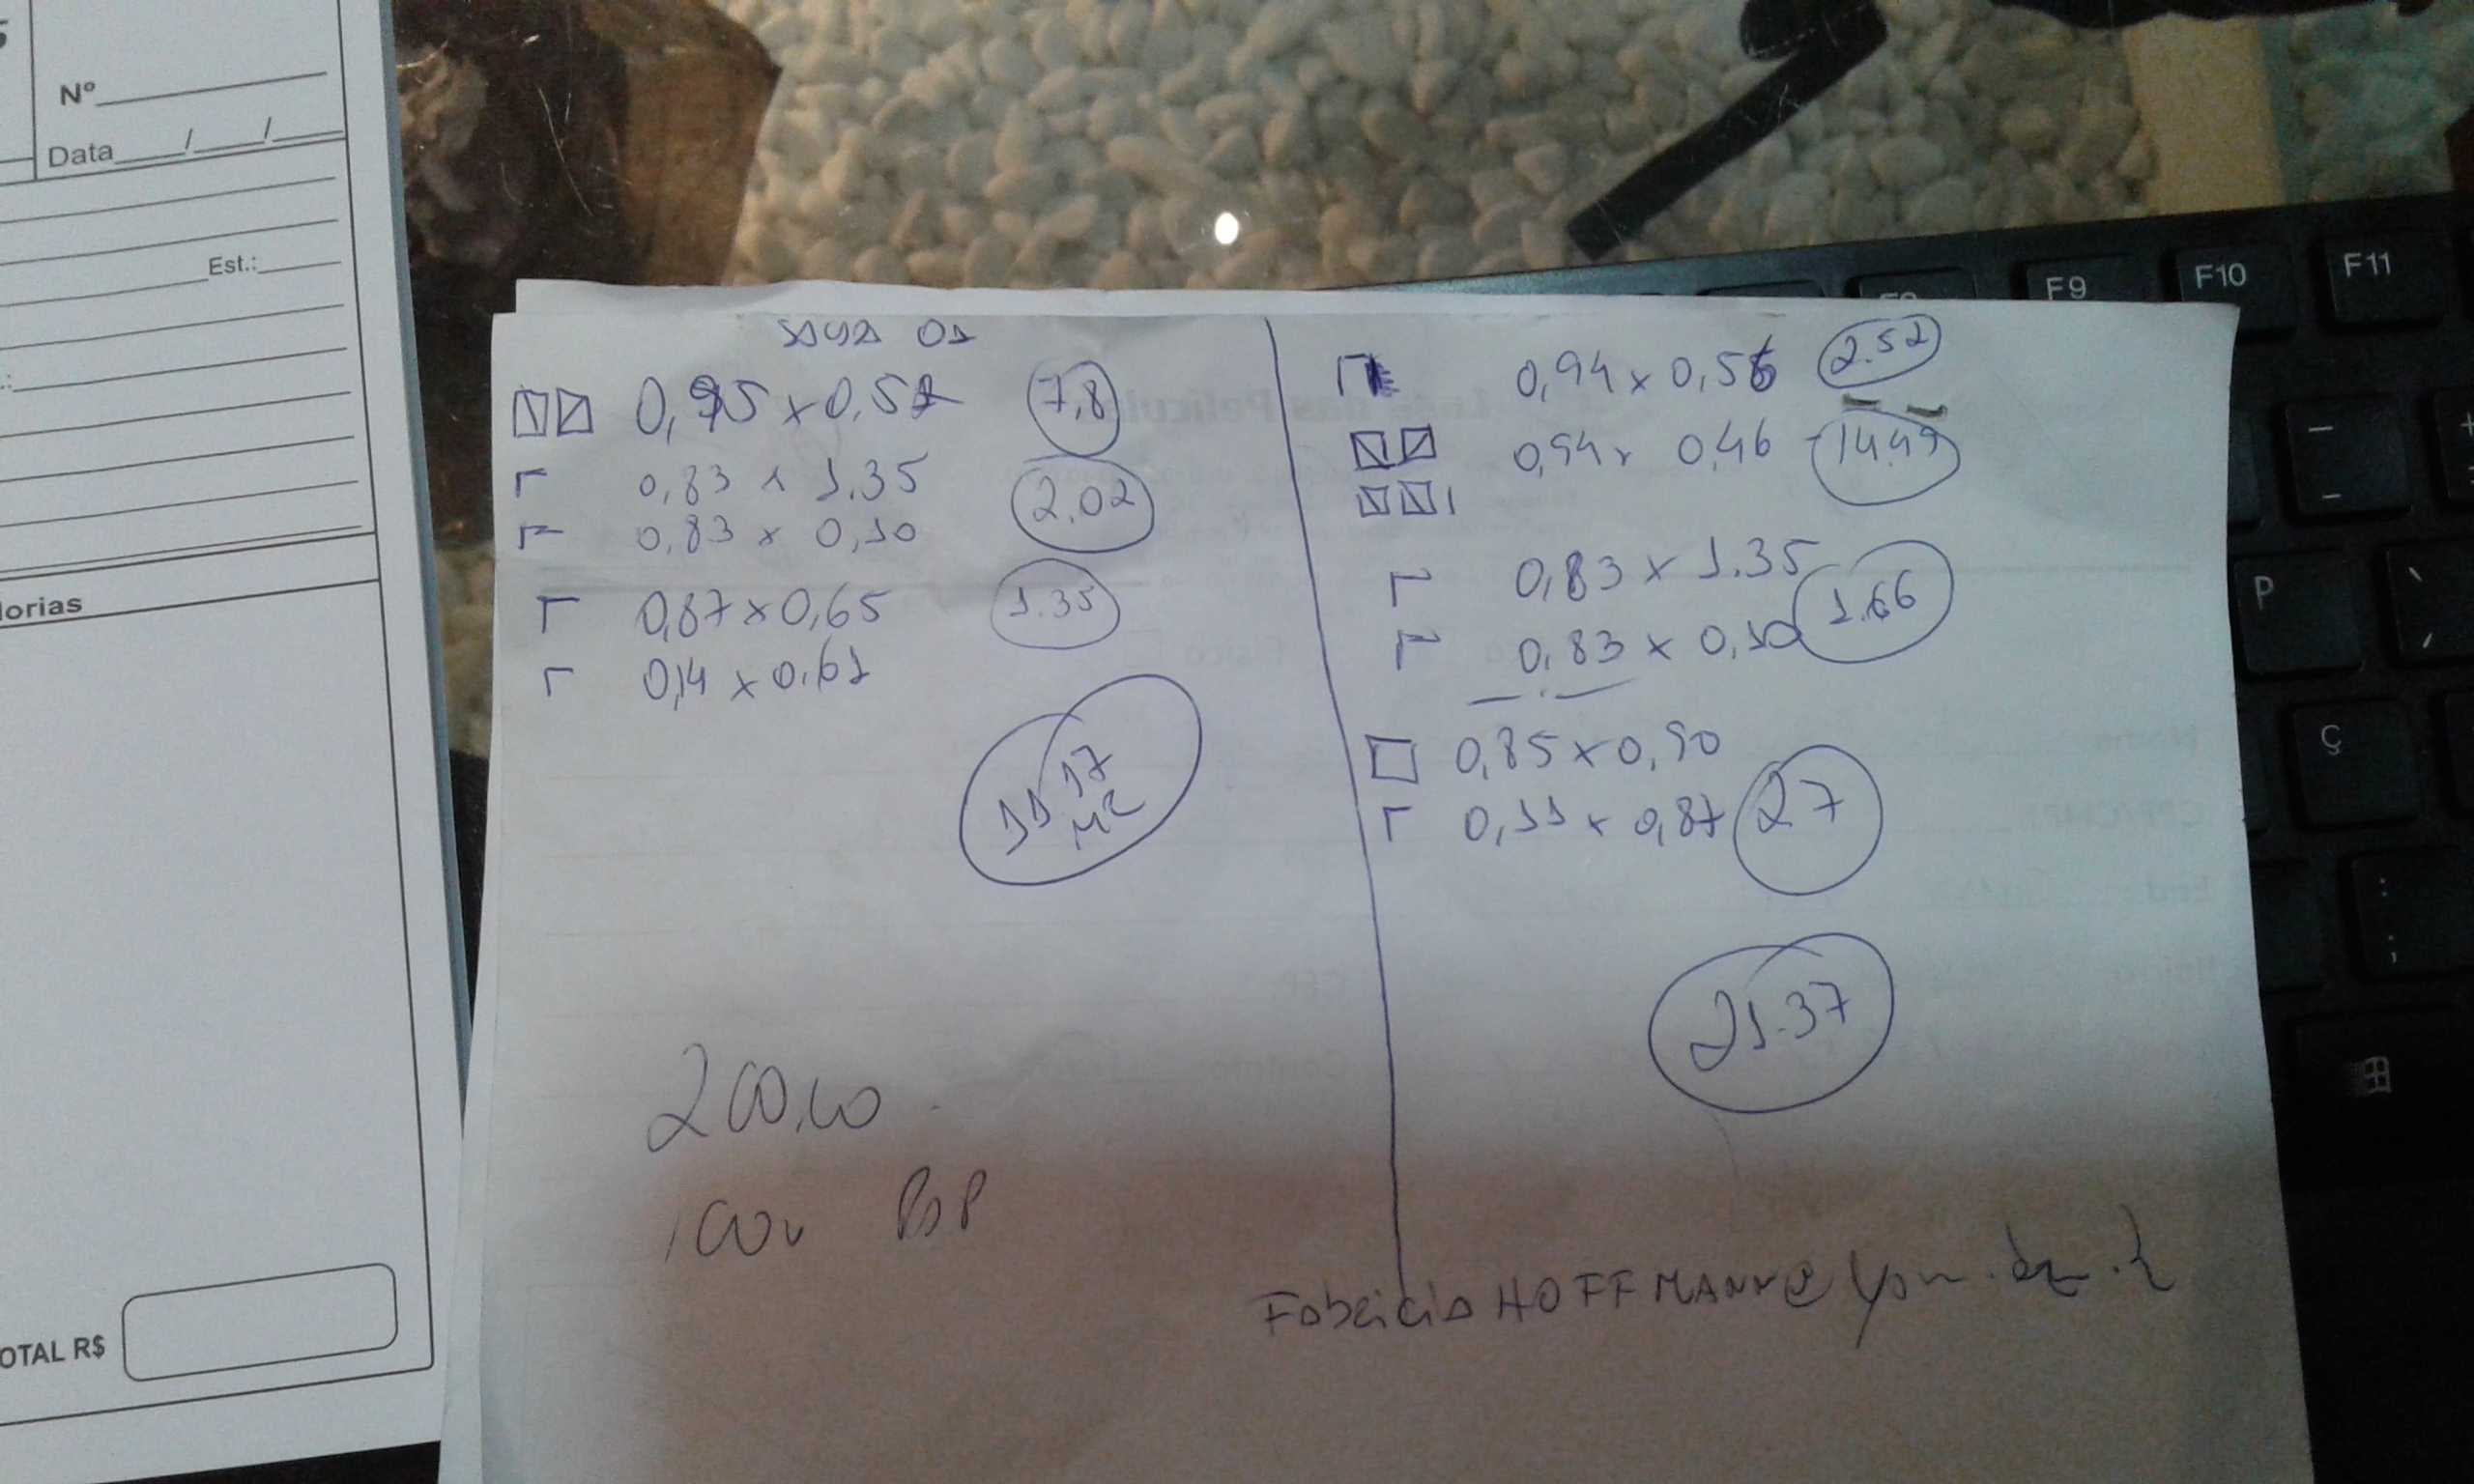 Nº
Data / /
Est.:
lorias
OTAL R$
SALA 01
0,95 x 0,52 7,8
0,83 x 1.35
2,02
0,83 x 0,10
0,87 x 0,65 1.35
0,14 x 0,61
11 17
M2
200,00
0,94 x 0,56 2.52
0,94 x 0,46 14.49
0,83 x 1.35
1.66
0,83 x 0,10
0,85 x 0,90
0,11 x 0,87 27
21.37
Fabricio HOFFMANN@
F9 F10 F11
P
Ç